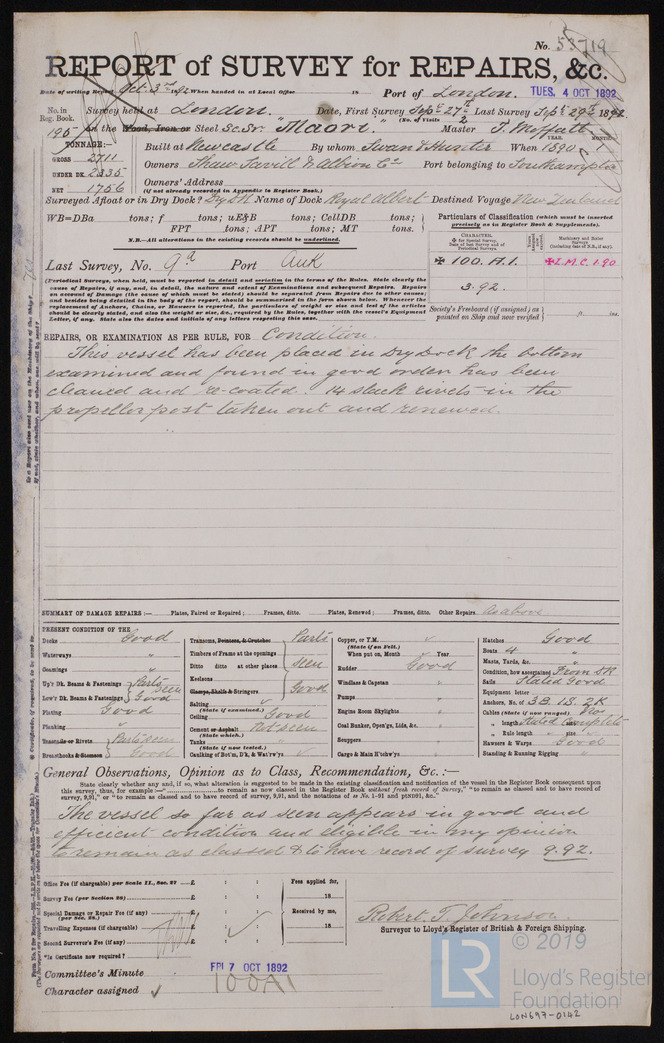 No. 53719
REPORT of SURVEY for REPAIRS, &c.
Date of writing Report Oct. 3rd 1892 When handed in at Local Office 18 Port of London. TUES. 4 OCT 1892
No. in Reg. Book. Survey held at London. Date, First Survey Sept 27th Last Survey Sept 29th 1892
(No. of Visits 2
on the Wood, Iron or Steel Sc. Sr. "Maori." Master T. Moffatt
TONNAGE:— Built at Newcastle By whom Swan & Hunter When 1890
YEAR. MONTH.
GROSS 2711
Owners Shaw Savill & Albion Co Port belonging to Southampton
UNDER DK. 2335
NET 1756
Owners' Address
(if not already recorded in Appendix to Register Book.)
Surveyed Afloat or in Dry Dock? Dry Dk Name of Dock Royal Albert Destined Voyage New Zealand
WB=DBa tons; f tons; uE&B tons; CellDB tons;
FPT tons; APT tons; MT tons.
N.B.—All alterations in the existing records should be underlined.
Particulars of Classification (which must be inserted precisely as in Register Book & Supplements).
CHARACTER.
for Special Survey, Date of last Survey and of Periodical Surveys.
Machinery and Boiler Surveys (including date of N.B., if any).
100.A.1. L.M.C. 1.90
3.92.
Last Survey, No. Port
(Periodical Surveys, when held, must be reported in detail and seriatim in the terms of the Rules. State clearly the cause of Repairs, if any, and, in detail, the nature and extent of Examinations and subsequent Repairs. Repairs on account of Damage (the cause of which must be stated) should be separated from Repairs due to other causes; and besides being detailed in the body of the report, should be summarised in the form shewn below. Whenever the replacement of Anchors, Chains, or Hawsers is reported, the particulars of weight or size and test of the articles should be clearly stated, and also the weight or size, &c., required by the Rules, together with the vessel's Equipment Letter, if any. State also the dates and initials of any letters respecting this case.
Society's Freeboard (if assigned) as painted on Ship and now verified
REPAIRS, OR EXAMINATION AS PER RULE, FOR Condition.
This vessel has been placed in Dry Dock the bottom
examined and found in good order has been
cleaned and re-coated. 14 slack rivets in the
propellor post taken out and renewed.
SUMMARY OF DAMAGE REPAIRS:— Plates, Faired or Repaired; Frames, ditto. Plates, Renewed; Frames, ditto. Other Repairs. As above
PRESENT CONDITION OF THE
Decks Good
Waterways "
Coamings "
Up'r Dk. Beams & Fastenings Parts seen
Low'r Dk. Beams & Fastenings Good
Plating Good
Planking "
Treenails or Rivets Parts seen
Breasthooks & Stemson Good
Transoms, Pointers, & Crutches Parts
Timbers of Frame at the openings
Ditto ditto at other places seen
Keelsons
Clamps, Shelfs & Stringers Good
Salting
(State if examined.)
Ceiling Good
Cement or Asphalt Not seen
(State which.)
Tanks
(State if now tested.)
Caulking of Bot'm, Dk, & Wat'rw'ys
Copper, or T.M.
(State if on Felt.)
When put on, Month Year
Rudder Good
Windlass & Capstan "
Pumps "
Engine Room Skylights "
Coal Bunker, Open'gs, Lids, &c. "
Scuppers "
Cargo & Main Hatchw'ys "
Hatches Good
Boats 4 "
Masts, Yards, &c. "
Condition, how ascertained From Dk
Sails Stated Good
Equipment letter
Anchors, No. of 3B. 1S. 2K
Cables (State if now ranged) No
" length Stated Complete
" Rule length " size
Hawsers & Warps Good
Standing & Running Rigging "
General Observations, Opinion as to Class, Recommendation, &c. :—
State clearly whether any, and if so, what alteration is suggested to be made in the existing classification and notification of the vessel in the Register Book consequent upon
this survey, thus, for example:—" to remain as now classed in the Register Book without fresh record of Survey," "to remain as classed and to have record of
survey, 9,91," or "to remain as classed and to have record of survey, 9,91, and the notations of
The vessel so far as seen appears in good and
efficient condition and eligible in my opinion
to remain as classed & to have record of survey 9.92.
Office Fee (if chargeable) per Scale II., Sec. 27 £ : :
Survey Fee (per Section 28) £ : :
Special Damage or Repair Fee (if any) £ : :
(per Sec. 28.)
Travelling Expenses (if chargeable) £ : :
Second Surveyor's Fee (if any) £ : :
Fees applied for, 18
Received by me, 18
*Is Certificate now required?
Robert T. Johnson.
Surveyor to Lloyd's Register of British & Foreign Shipping.
Committee's Minute FRI 7 OCT 1892
Character assigned 100A1
LR © 2019
Lloyd's Register
Foundation
LON697-0142